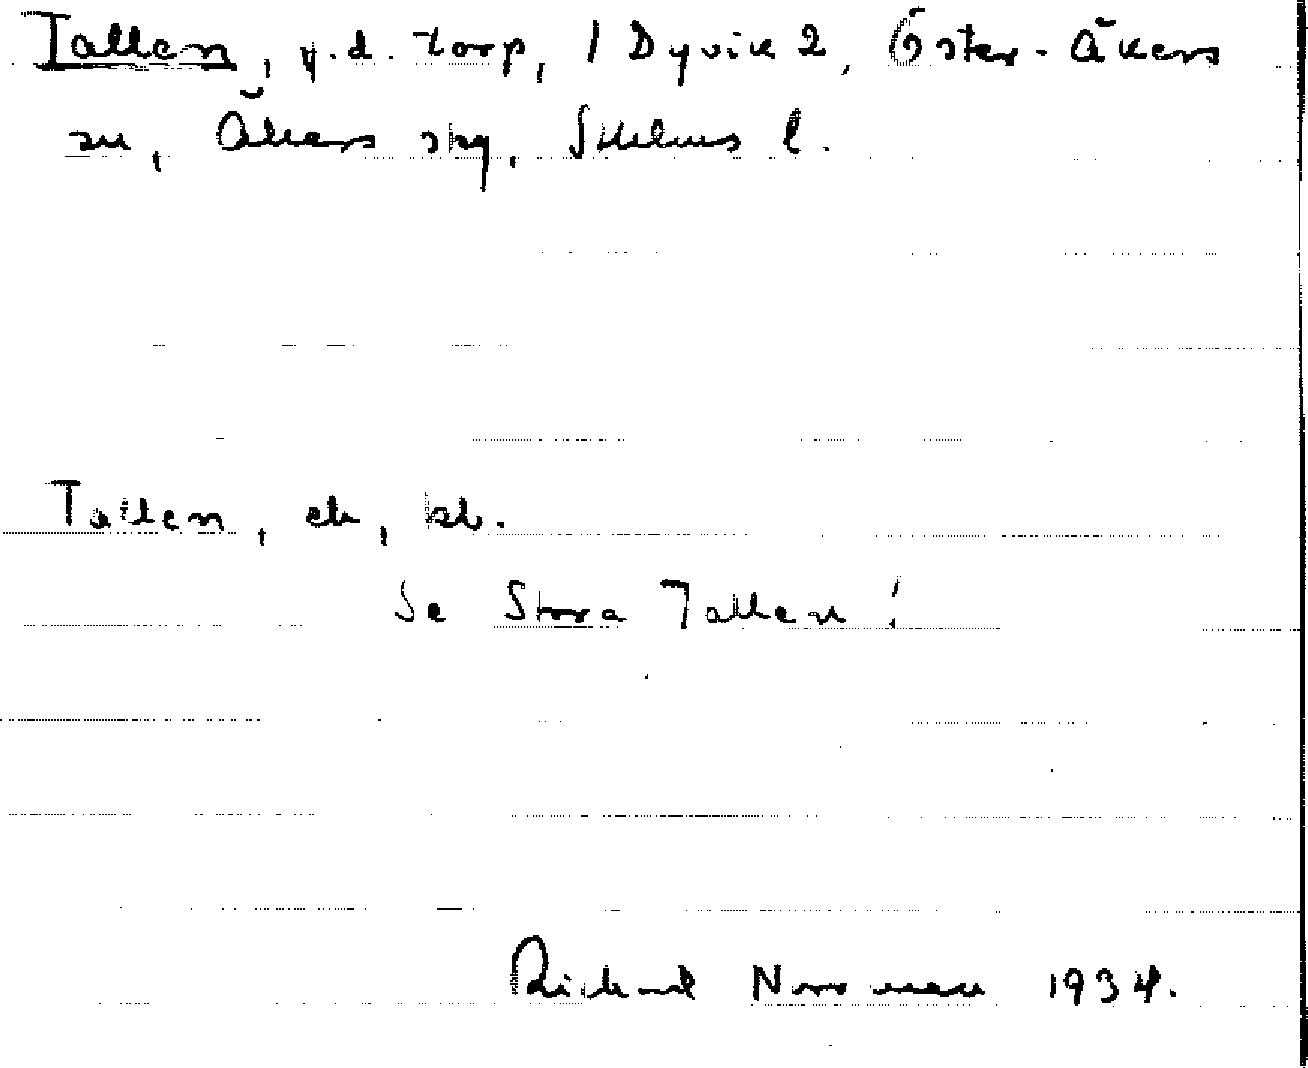 Tallen, f.d. torp, 1 Dyvik 2, Öster-Åkers
sn, Åkers skg, Sthlms l.
Tallen, ek, bb.
Se Stora Tallen!
Richard Norrman 1934.